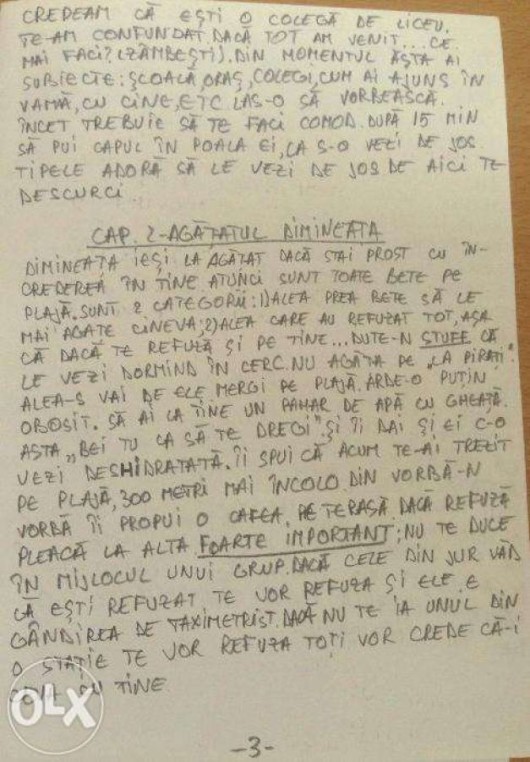 CREDEAM CĂ EȘTI O COLEGĂ DE LICEU.
TE-AM CONFUNDAT. DACĂ TOT AM VENIT... CE
MAI FACI? (ZÂMBEȘTI). DIN MOMENTUL ĂSTA AI
SUBIECTE: ȘCOALĂ, ORAȘ, COLEGI, CUM AI AJUNS ÎN
VAMĂ, CU CINE, ETC. LAS-O SĂ VORBEASCĂ.
ÎNCET TREBUIE SĂ TE FACI COMOD. DUPĂ 15 MIN
SĂ PUI CAPUL ÎN POALA EI, CA S-O VEZI DE JOS
TIPELE ADORĂ SĂ LE VEZI DE JOS DE AICI TE
DESCURCI
CAP. 2-AGĂȚATUL DIMINEAȚA
DIMINEAȚA IEȘI LA AGĂȚAT DACĂ STAI PROST CU ÎN-
CREDEREA ÎN TINE ATUNCI SUNT TOATE BETE PE
PLAJĂ. SUNT 2 CATEGORII: 1) ALEA PREA BETE SĂ LE
MAI AGAȚE CINEVA; 2) ALEA CARE AU REFUZAT TOT, AȘA
CĂ DACĂ TE REFUZĂ ȘI PE TINE... DUTE-N STUFF CĂ
LE VEZI DORMIND ÎN CERC. NU AGĂȚA PE "LA PIRAȚI"
ALEA-S VAI DE ELE. MERGI PE PLAJĂ. ARDE-O PUȚIN
OBOSIT. SĂ AI LA TINE UN PAHAR DE APĂ CU GHEAȚĂ.
ASTA "BEI TU CA SĂ TE DREGI" ȘI ÎI DAI ȘI EI C-O
VEZI DESHIDRATATĂ. ÎI SPUI CĂ ACUM TE-AI TREZIT
PE PLAJĂ, 300 METRI MAI ÎNCOLO. DIN VORBĂ-N
VORBĂ ÎI PROPUI O CAFEA, PE TERASĂ DACĂ REFUZĂ
PLEACĂ LA ALTA. FOARTE IMPORTANT: NU TE DUCE
ÎN MIJLOCUL UNUI GRUP. DACĂ CELE DIN JUR VĂD
CĂ EȘTI REFUZAT TE VOR REFUZA ȘI ELE. E
GÂNDIREA DE TAXIMETRIST. DACĂ NU TE IA UNUL DIN
O STAȚIE TE VOR REFUZA TOȚI VOR CREDE CĂ-I
CEVA CU TINE
OLX
-3-